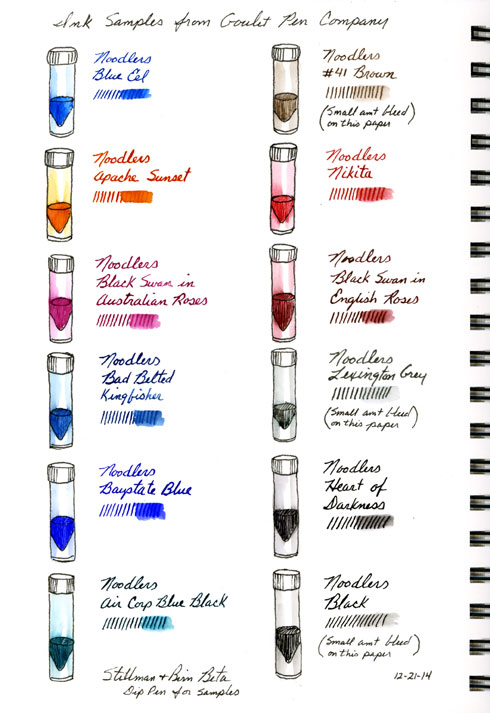 Ink Samples from Goulet Pen Company
Noodlers
Blue Eel
Noodlers
Apache Sunset
Noodlers
Black Swan in
Australian Roses
Noodlers
Bad Belted
Kingfisher
Noodlers
Baystate Blue
Noodlers
Air Corp Blue Black
Stillman & Birn Beta
Dip Pen for Samples
Noodlers
#41 Brown
(Small amt bleed)
on this paper
Noodlers
Nikita
Noodlers
Black Swan in
English Roses
Noodlers
Lexington Grey
(Small amt bleed)
on this paper
Noodlers
Heart of
Darkness
Noodlers
Black
(Small amt bleed)
on this paper
12-21-14